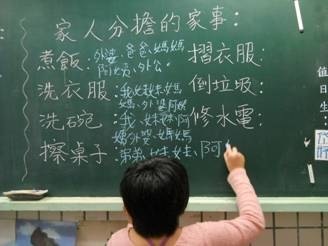 家人分擔的家事：
煮飯：外婆、爸爸、媽媽
阿姨、外公
洗衣服：我、妹妹、媽
媽、外婆、阿姨
洗碗：我、妹妹、阿
媽
擦桌子：弟弟、妹妹、阿
摺衣服：
倒垃圾：
修水電：
值日生